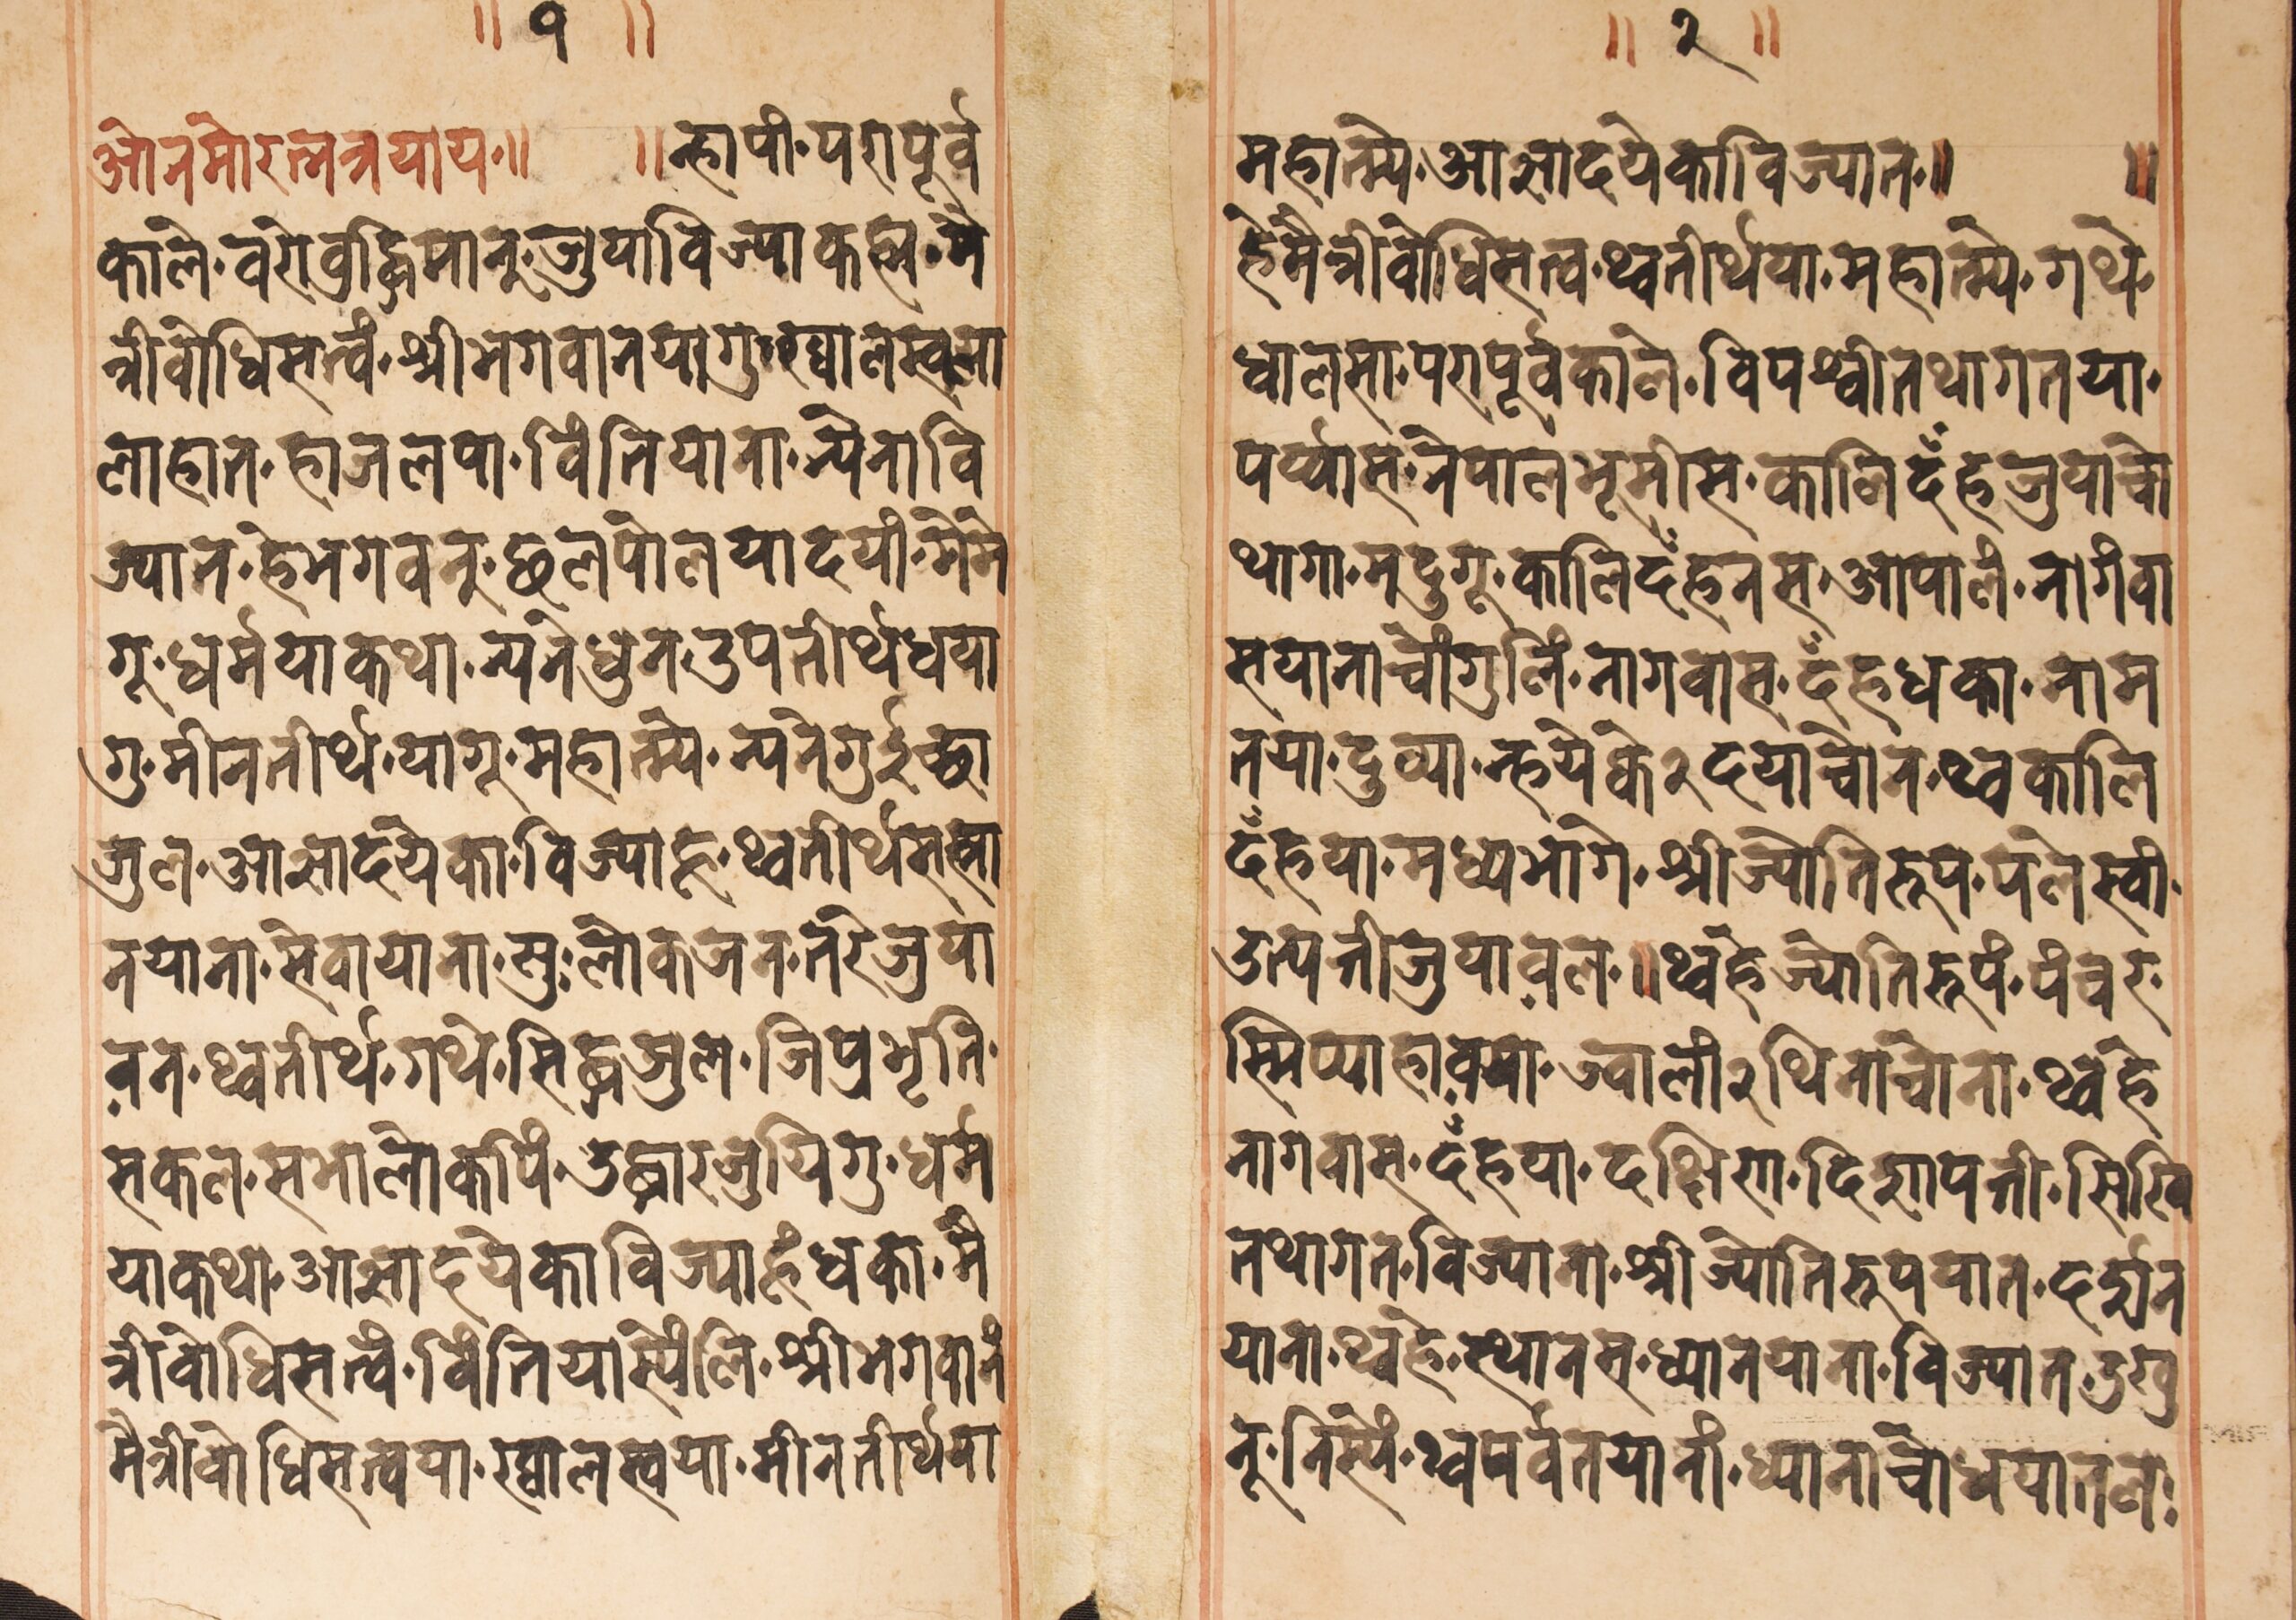 ॥ १ ॥
ओनमोरत्नत्रयाय॥ ॥न्हापी·परापूर्व
काले·वरोवुद्धिमानु·जुयाविज्याकह्म·मै
त्रीवोधिसत्वं·श्रीभगवानयागु·ख्वालस्वया
लाहात·हाजलपा·विंतियाना·न्यनावि
ज्यात·हेभगवनु·छलपोलयादयां·मेमे
गू·धर्मयाकथा·न्यनेधुन·उपतीर्थधया
गु·मीनतीर्थ·यागू·महात्म्ये·न्यनेगुईच्छा
जुल·आज्ञादयेका·विज्याहु·थ्वतीर्थसस्ना
नयाना·सेवायाना·सुःलोकजन·तरेजुया
वन·थ्वतीर्थ·गथे·सिद्धजुल·जिप्रभृति·
सकल·सभालोकपिं·उद्धारजुयिगु·धर्म
याकथा·आज्ञादयेकाविज्याहुंधका·मै
त्रीवोधिसत्वं·विंतियास्येंलि·श्रीभगवानं
मैत्रीवोधिसत्वया·ख्वालस्वया·मीनतीर्थया
॥ २ ॥
महात्म्ये·आज्ञादयेकाविज्यात·॥ ॥
हेमैत्रीवोधिसत्व·थ्वतीर्थया·महात्म्ये·गथे·
धालसा·परापूर्वकाले·विपश्वीतथागतया·
पर्य्यास·नेपालभूमीस·कालिदँहजुयाचो
थागा·मदुगू·कालिदँहनस·आपालं·नागंवा
सयानाचोंगुलिं·नागवास·दँहधका·नाम
तया·दुव्या·न्हयेके२दयाचोन·थ्वकालि
दँहया·मध्यभागे·श्रीज्योतिरूप·पलेस्वां·
उत्पत्तीजुयावल·॥थ्वहेज्योतिरूपं·पंचर
स्मिप्याहावया·ज्वालां२थिनाचोना·थ्वहे
नागवास·दँहया·दक्षिण·दिशापत्ती·सिखि
तथागत·विज्याना·श्रीज्योतिरूपयात·दर्शन
याना·थ्वहे·स्थानस·ध्यानयाना·विज्यात·उखु
नू·निस्यें·थ्वपर्वतयानां·ध्यानाचोधयातलः